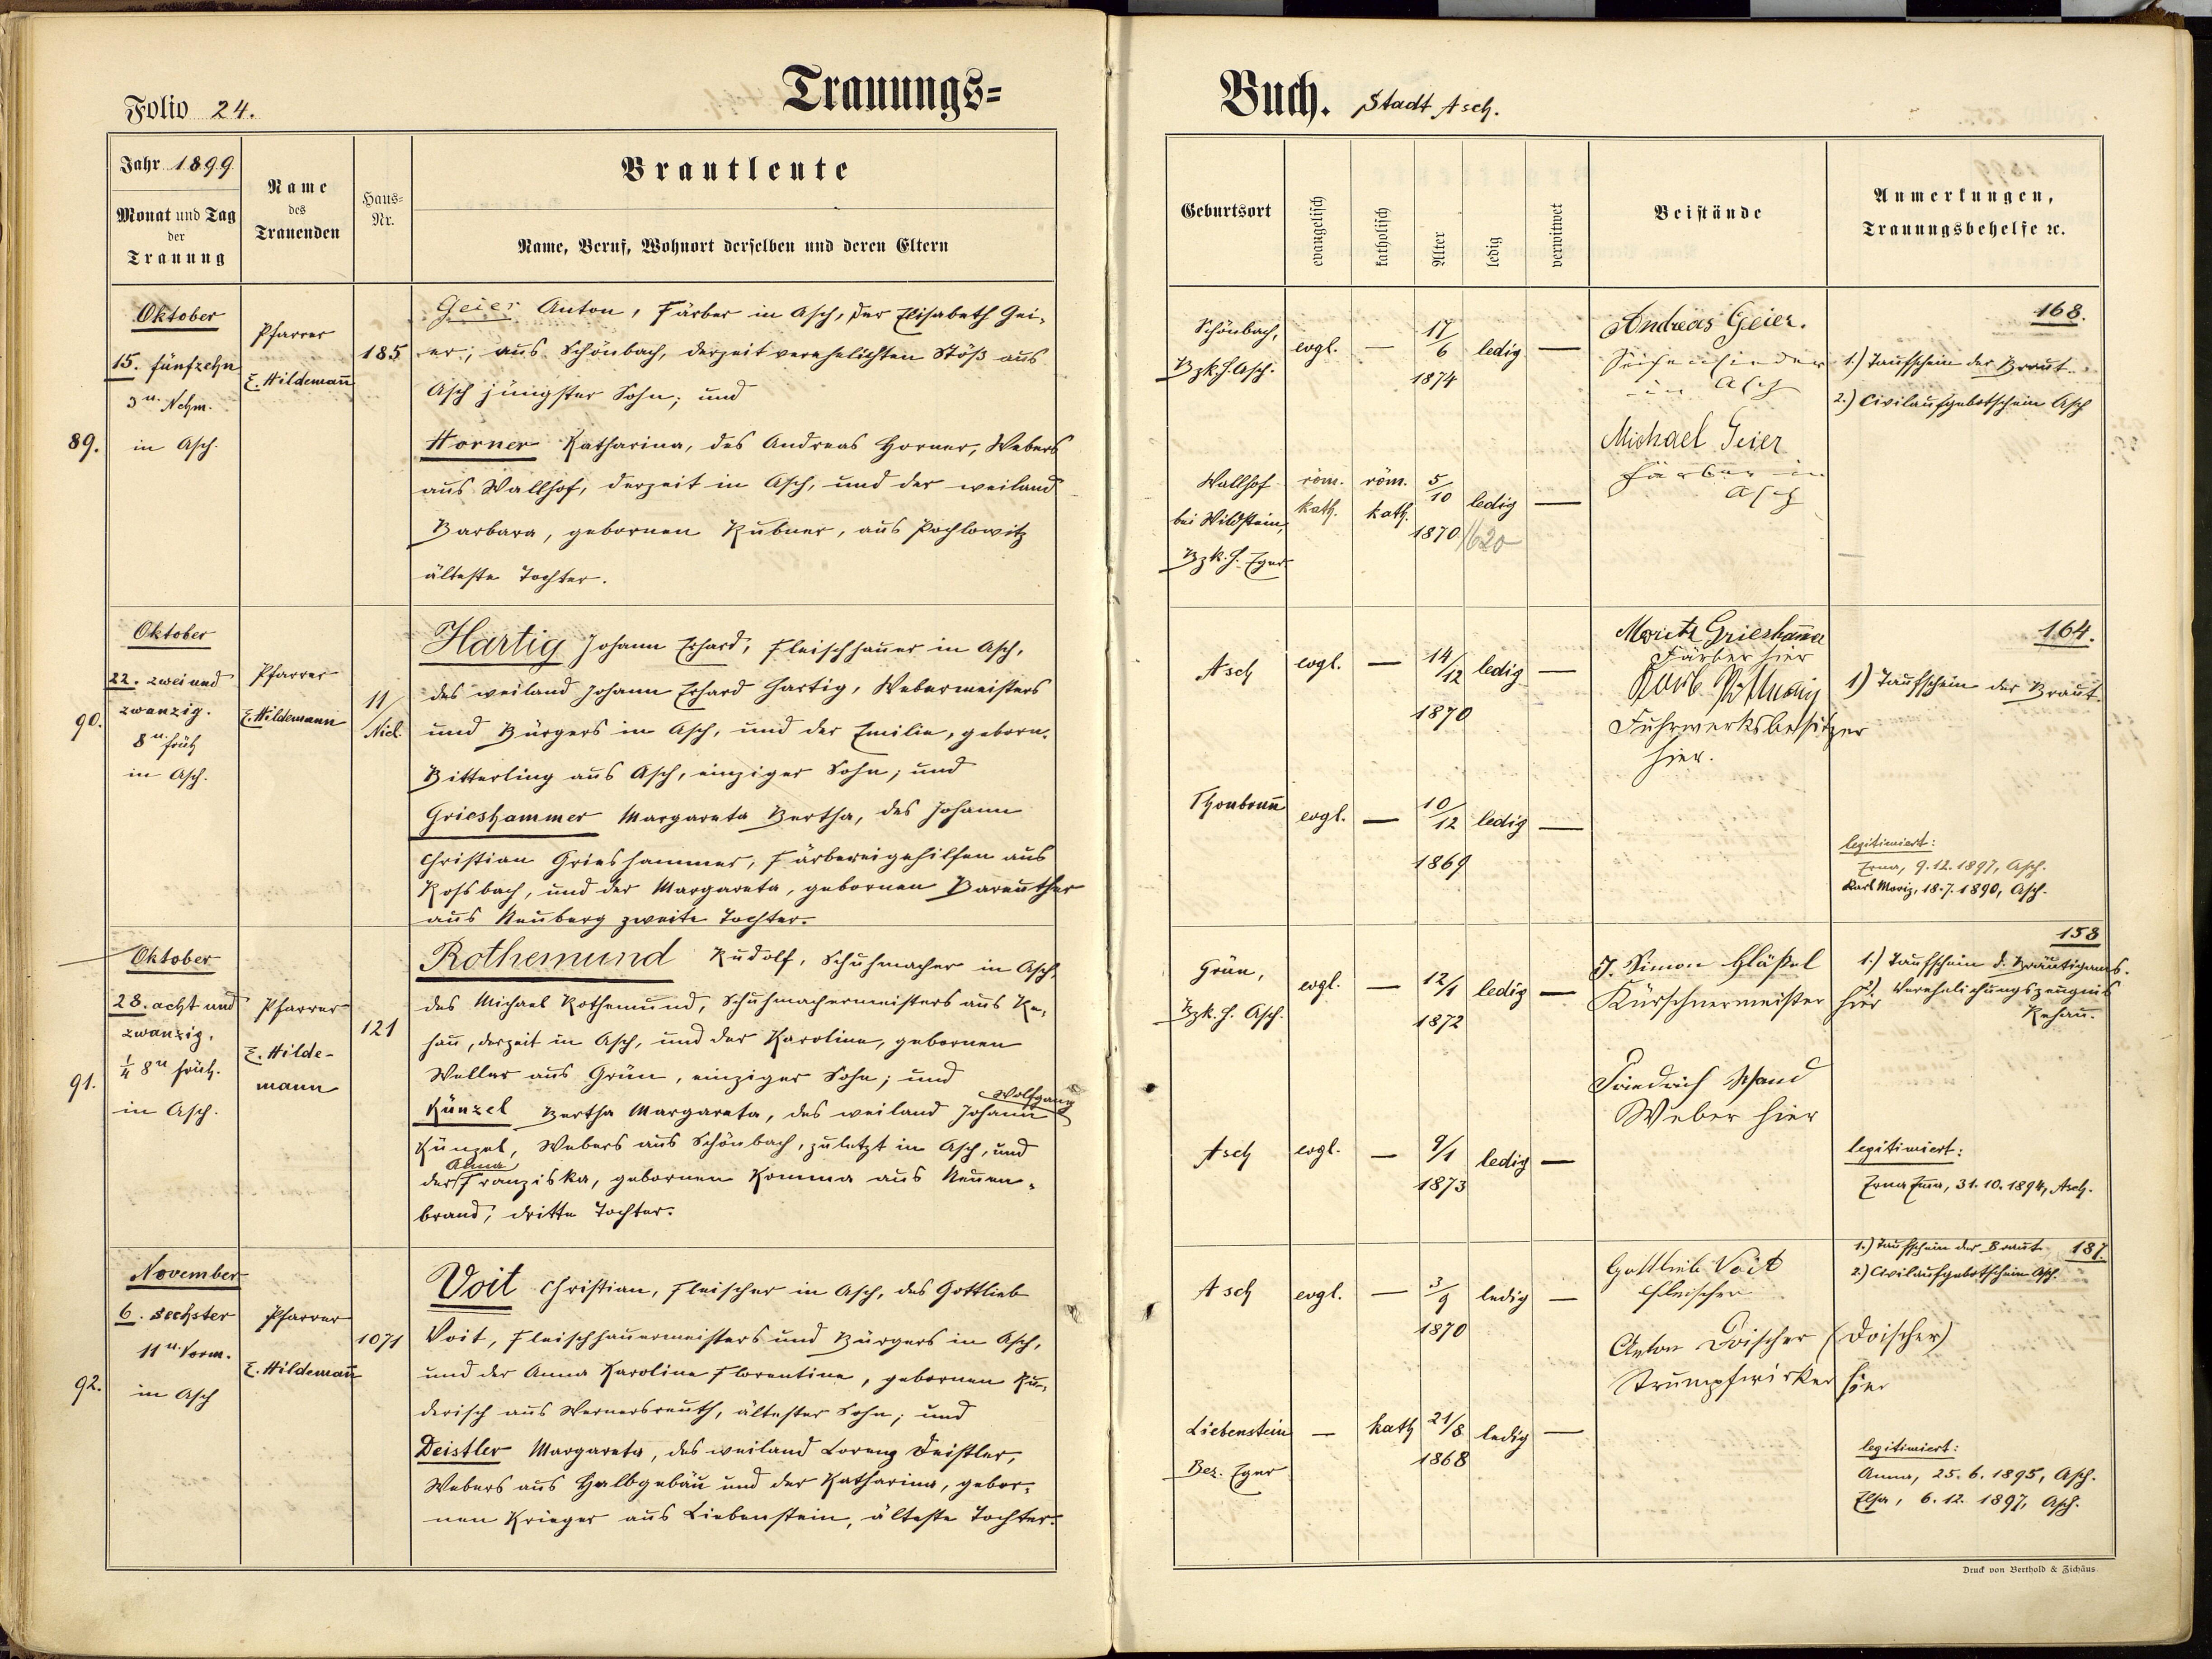 Trauungs=
Folio 24.
Jahr 1899
Monat und Tag
der
Trauung
Name
des
Trauenden
Haus=
Nr.
Brautleute
Name, Beruf, Wohnort derselben und deren Eltern
89.
Oktober
15. fünfzehn
3 u. Nchm.
in Asch.
Pfarrer
E. Hildemañ
185
Geier Anton, Färber in Asch, der Elisabeth Gei-
er, aus Schönbach, derzeit verehelichten Stöß aus
Asch jüngster Sohn; und
Horner Katharina, des Andreas Horner, Webers
aus Wallhof, derzeit in Asch, und der weiland
Barbara, gebornen Kubner, aus Pochlowitz
älteste Tochter.
90.
Oktober
22. zwei und
zwanzig.
8 u. früh
in Asch.
Pfarrer
E. Hildemann
11/
Nicl.
Hartig Johann Erhard, Fleischhauer in Asch,
des weiland Johann Erhard Hartig, Webermeisters
und Bürgers in Asch, und der Emilie, geborn.
Bitterling aus Asch, einziger Sohn; und
Grieshammer Margareta Bertha, des Johann
Christian Grieshammer, Färbereigehilfen aus
Rossbach, und der Margareta, gebornen Bareuther
aus Neuberg zweite Tochter.
91.
Oktober
28. acht und
zwanzig.
1/4 8 u früh.
in Asch.
Pfarrer
E. Hilde-
mann
121
Rothemund Rudolf, Schuhmacher in Asch,
des Michael Rothemund, Schuhmachermeisters aus Re-
hau, derzeit in Asch, und der Karoline, gebornen
Weller aus Grün, einziger Sohn; und
Wolfgang
Künzel Bertha Margareta, des weiland Johann
Künzel, Webers aus Schönbach, zuletzt in Asch, und
Anna
der Franziska, gebornen Komma aus Neuen-
brand, dritte Tochter.
92.
November
6. sechster
11 u. Vorm.
in Asch
Pfarrer
E. Hildemañ
1071
Voit Christian, Fleischer in Asch, des Gottlieb
Voit, Fleischhauermeisters und Bürgers in Asch,
und der Anna Karoline Florentine, gebornen Ku-
derisch aus Wernersreuth, ältester Sohn; und
Deistler Margareta, des weiland Lorenz Deistler,
Webers aus Halbgebäu und der Katharina, gebor-
nen Krieger aus Liebenstein, älteste Tochter.
Buch. Stadt Asch.
Geburtsort
evangelisch
katholisch
Alter
ledig
verwitwet
Beistände
Anmerkungen,
Trauungsbehelfe ec.
Schönbach,
Bzk.H. Asch.
evgl. — 17/6 1874 ledig —
Andreas Geier.
Seifensieder
in Asch
Michael Geier
Färber in
Asch
168.
1.) Taufschein der Braut.
2.) Civilaufgebotschein Asch
Wallhof
bei Wildstein,
Bzk.H. Eger
röm. kath.
röm. kath.
5/10 1870 ledig —
1620
Asch evgl. — 14/12 1870 ledig —
Moritz Grieshamer
Färber hier
Fuhrwerksbesitzer
hier.
164.
1) Taufschein der Braut
Thonbrunn evgl. — 10/12 1869 ledig —
legitimiert:
Erna, 9.12.1897, Asch.
Karl Moriz, 18.7.1890, Asch.
Grün,
Bzk.H. Asch.
evgl. — 12/1 1872 ledig —
J. Simon Gläßel
Kürschnermeister hier
Friedrich Wand
Weber hier
158
1.) Taufschein d. Bräutigams.
2) Verehelichungszeugnis
Rehau.
Asch evgl. — 9/1 1873 ledig —
legitimiert:
Erna, 31.10.1894, Asch.
Asch evgl. — 3/9 1870 ledig —
Gottlieb Voit
Fleischer
Anton Doischer (Doischer)
Strumpfwirker hier
1.) Taufschein der Braut 187.
2.) Civilaufgebotschein Asch.
Liebenstein
Bez. Eger
— kath 21/8 1868 ledig —
legitimiert:
Anna, 25.6.1895, Asch.
Elsa, 6.12.1897, Asch.
Druck von Berthold & Zichäus